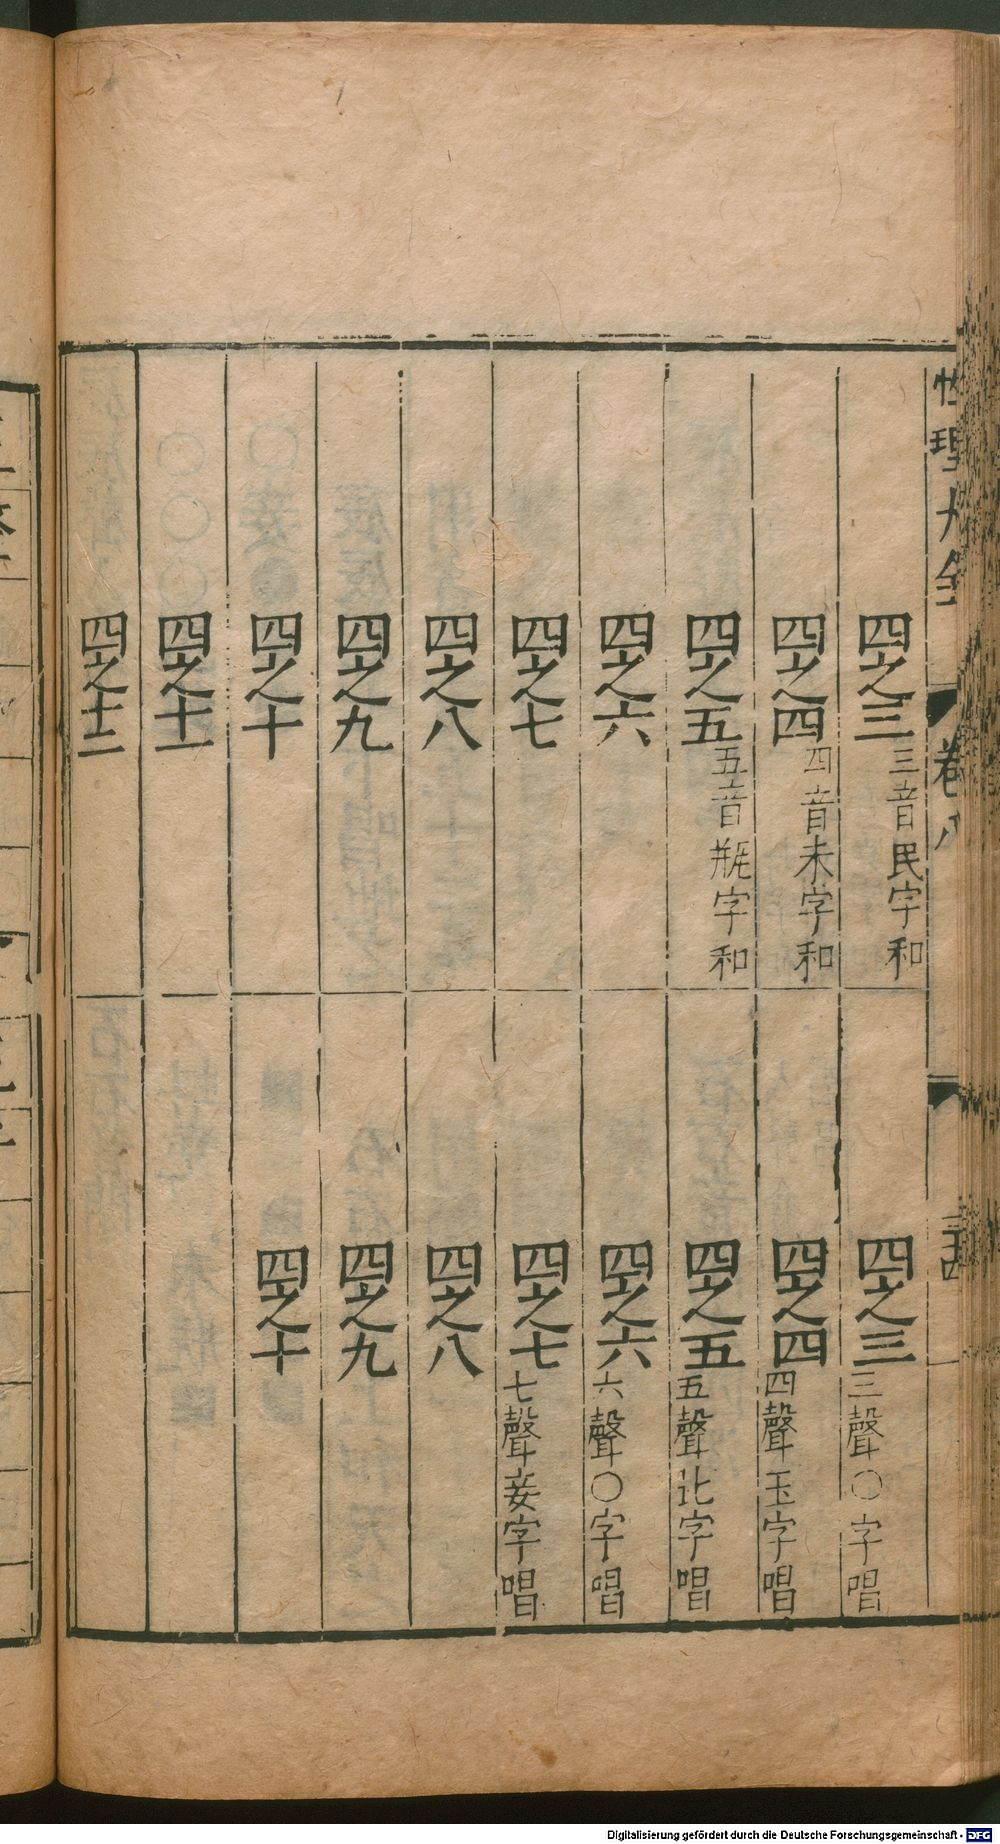 性理大全
卷八
四之三三音民字和
四之三三聲〇字唱
四之四四音未字和
四之四四聲玉字唱
四之五五音瓶字和
四之五五聲北字唱
四之六
四之六六聲〇字唱
四之七
四之七七聲妾字唱
四之八
四之八
四之九
四之九
四之十
四之十
四之十一
四之十二
Digitalisierung gefördert durch die Deutsche Forschungsgemeinschaft - DFG